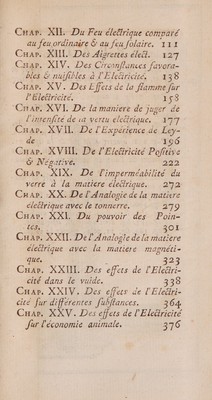 CHAP. XII. Du Feu électrique comparé
au feu ordinaire & au feu solaire. 111
CHAP. XIII. Des Aigrettes élect. 127
CHAP. XIV. Des Circonstances favora-
bles & nuisibles à l'Electricité. 138
CHAP. XV. Des Effets de la flamme sur
l'Electricité. 158
CHAP. XVI. De la maniere de juger de
l'intensité de la vertu électrique. 177
CHAP. XVII. De l'Expérience de Ley-
de 196
CHAP. XVIII. De l'Electricité Positive
& Négative. 222
CHAP. XIX. De l'imperméabilité du
verre à la matiere électrique. 272
CHAP. XX. De l'Analogie de la matiere
électrique avec le tonnerre. 279
CHAP. XXI. Du pouvoir des Poin-
tes. 301
CHAP. XXII. De l'Analogie de la matiere
électrique avec la matiere magnéti-
que. 323
CHAP. XXIII. Des effets de l'Electri-
cité dans le vuide. 338
CHAP. XXIV. Des effets de l'Electri-
cité sur différentes substances. 364
CHAP. XXV. Des effets de l'Electricité
sur l'économie animale. 376